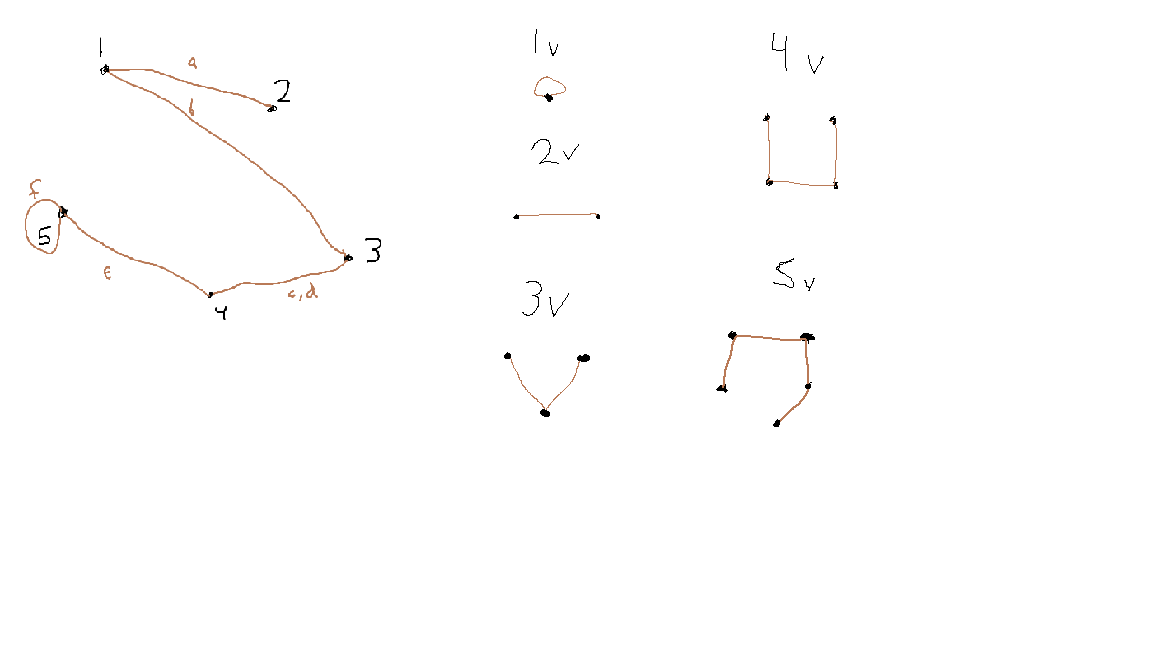 1
a
2
b
f
5
3
e
c,d
4
1v
2v
3v
4v
5v